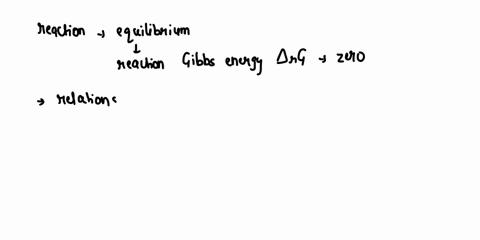 reaction → equilibrium
↓
reaction Gibbs energy ΔrG → zero
→ relation